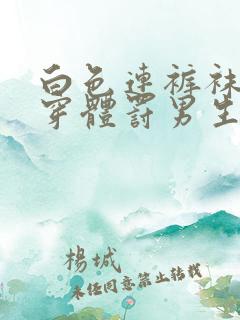 白色連褲袜
穿體罰男生
楊城
未任同意禁止转載